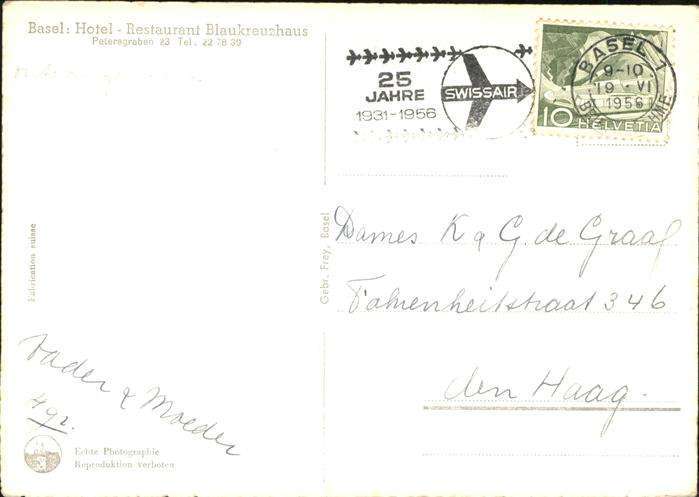 Basel: Hotel - Restaurant Blaukreuzhaus
Petersgraben 23 Tel. 22 78 39
25
JAHRE
1931-1956
SWISSAIR
BASEL 1
9-10
19. VI
1956
10 HELVETIA
Fabrication suisse
Gebr. Frey, Basel
Dames K & G. de Graaf
Fahrenheitstraat 346
den Haag.
Vader & Moeder
Echte Photographie
Reproduktion verboten